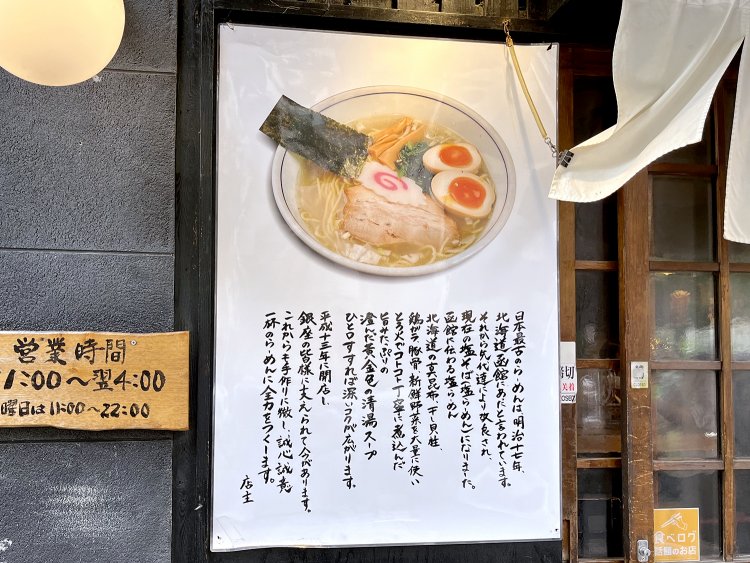 日本最古のらーめんは、明治十七年、
北海道函館にあったと言われています。
それから先代達により改良され、
現在の塩そば(塩らーめん)になりました。
函館に伝わる塩らーめん
北海道の真昆布・干し貝柱、
鶏がら・豚骨・新鮮野菜を大量に使い
とろ火でコトコト丁寧に煮込んだ
旨みたっぷりの
澄んだ黄金色の清湯スープ
ひと口すすれば深いコクが広がります。
平成十三年に開店し
銀座の皆様に支えられて今があります。
これからも手作りに徹し、誠心誠意
一杯のらーめんに全力をつくします。
店主
営業時間
11:00〜翌4:00
曜日は11:00〜22:00
食べログ
話題のお店